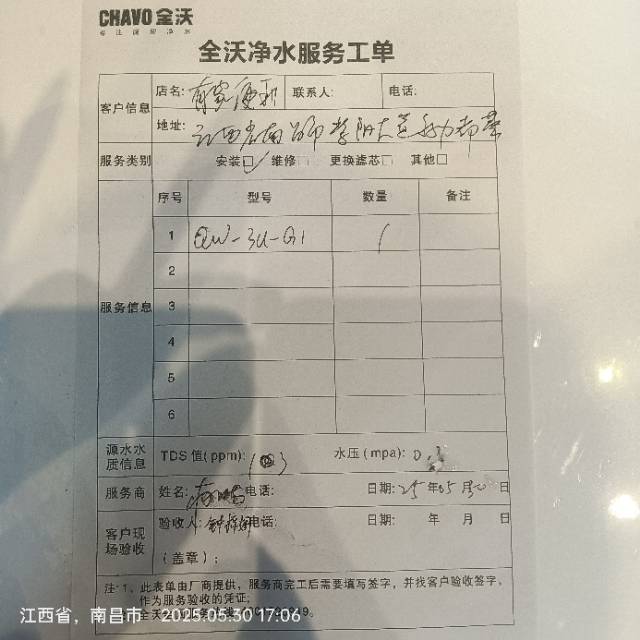 CHAVO 全沃
专注商用净水
全沃净水服务工单
客户信息
店名: 有家便利 联系人: 电话:
地址: 江西省南昌市
服务类别 安装☑ 维修□ 更换滤芯□ 其他□
服务信息
序号 型号 数量 备注
1 QW-3U-G1 1
2
3
4
5
6
源水水质信息 TDS值(ppm): 水压(mpa): 0.3
服务商 姓名: 电话: 日期: 25年05月30日
客户现场验收 验收人: 电话: 日期: 年 月 日
(盖章);
注:1、此表单由厂商提供,服务商完工后需要填写签字,并找客户验收签字,
作为服务验收的凭证;
江西省,南昌市 2025.05.30 17:06